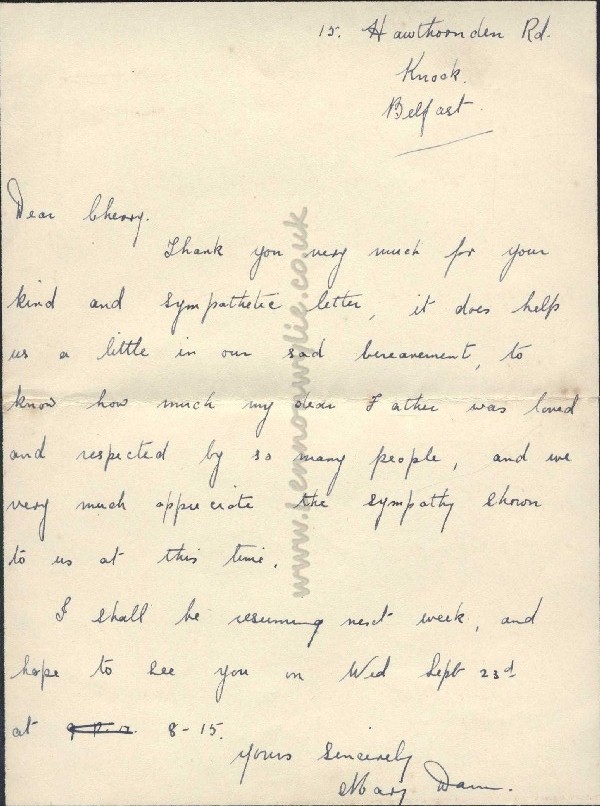 15. Hawthornden Rd.
Knock.
Belfast.
Dear Cherry.
Thank you very much for your
kind and sympathetic letter, it does help
us a little in our sad bereavement, to
know how much my dear Father was loved
and respected by so many people, and we
very much appreciate the sympathy shown
to us at this time.
I shall be resuming next week, and
hope to see you on Wed Sept 23rd
at 8-15.
Yours Sincerely
Mary
www.lennoxwylie.co.uk